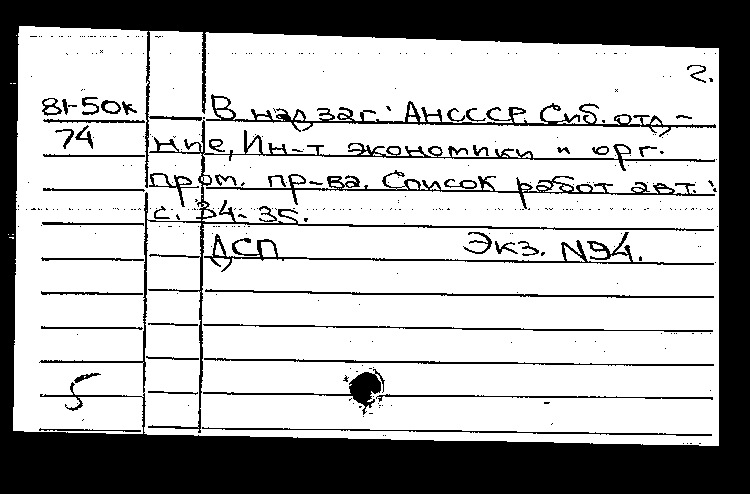 2.
81-50к В надзаг.: АН СССР. Сиб. отд-
74 ние, Ин-т экономики и орг.
пром. пр-ва. Список работ авт.:
с. 34-35.
ДСП Экз. N94.
5